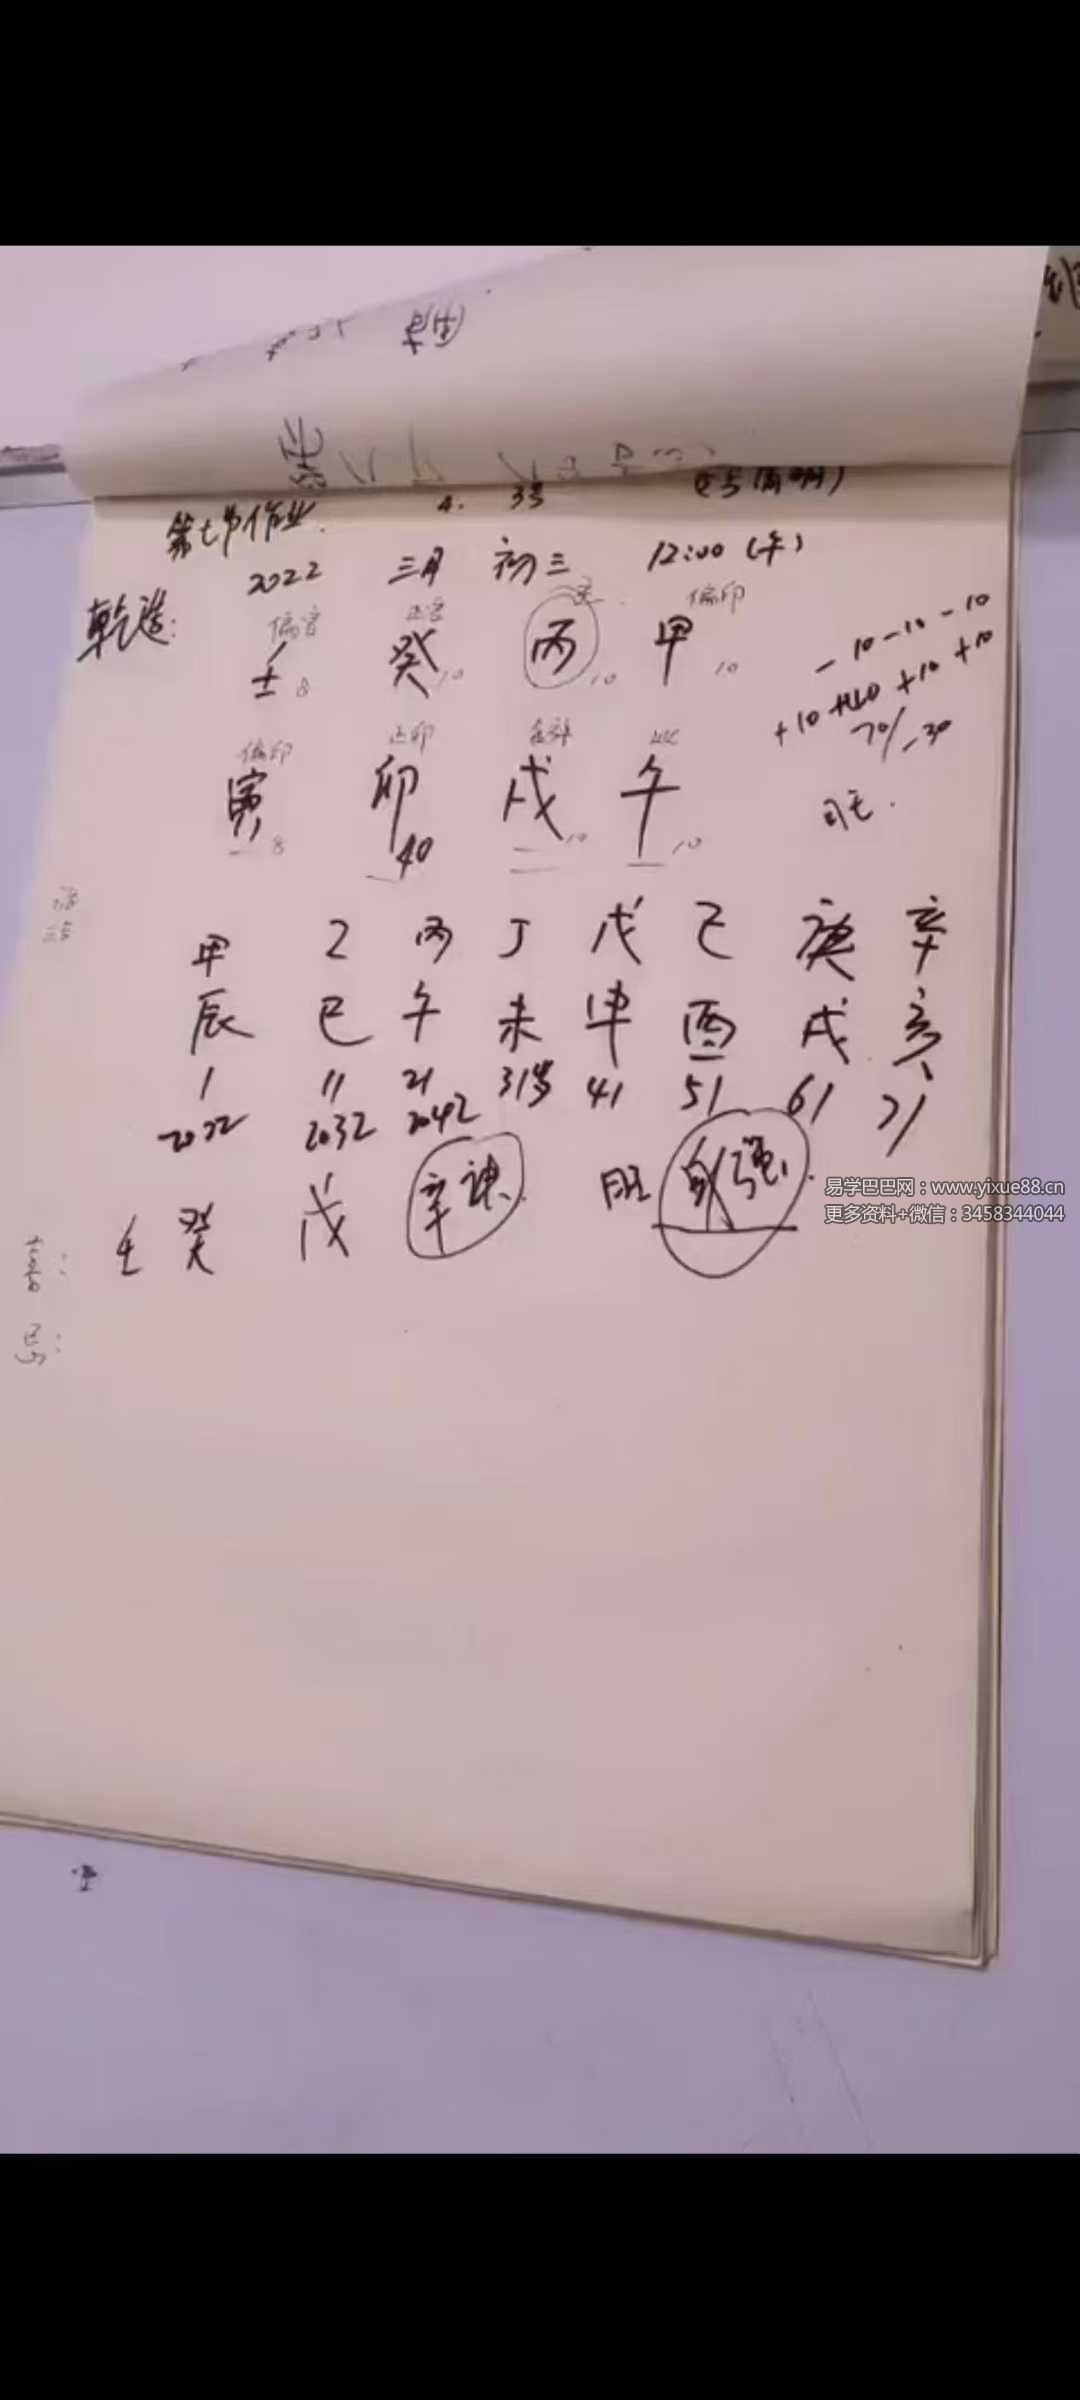 4. 3号 (5号清明)
第七节作业.
2022 三月 初三 12:00 (午)
乾造: 偏官 正官 偏印
壬8 癸10 丙10 甲10
-10-10-10
+10+40+10+10
70/-30
偏印 正印 食神
寅8 卯40 戌10 午10
旺.
甲 乙 丙 丁 戊 己 庚 辛
辰 巳 午 未 申 酉 戌 亥
1 11 21 31岁 41 51 61 71
2022 2032 2042
壬 癸 戊 旺 身强.
喜:
忌:
易学巴巴网:www.yixue88.cn
更多资料+微信:3458344044